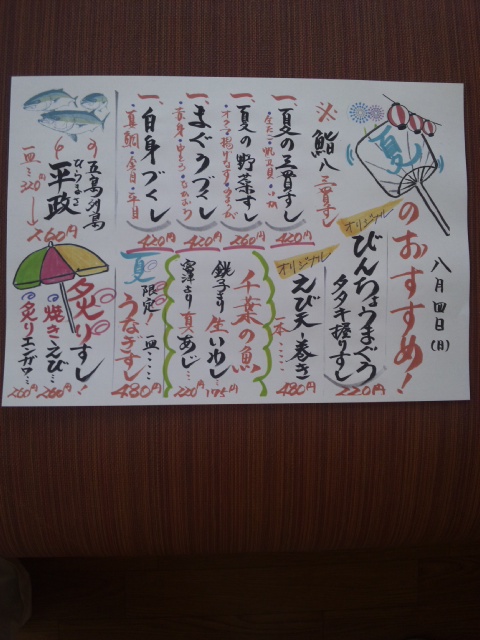 八月四日(月)
夏のおすすめ!
オリジナル
びんちょうまぐろ
タタキ握りすし
220円
※鮨八三貫すし
一、夏の三貫すし
420円
一、夏の野菜すし
260円
一、まぐろづくし
420円
一、白身づくし
・真鯛・金目・平目
420円
オリジナル
えび天巻き
一本・・・・
480円
千葉の魚
銚子より生いわし…
175円
富津より真あじ…
220円
夏限定!
うなぎすし
一皿・・・・
480円
五島列島の
ひらまさ
平政
一皿…320円
→260円
炙りすし!
焼きえび…
260円
炙りエンガワ…
260円